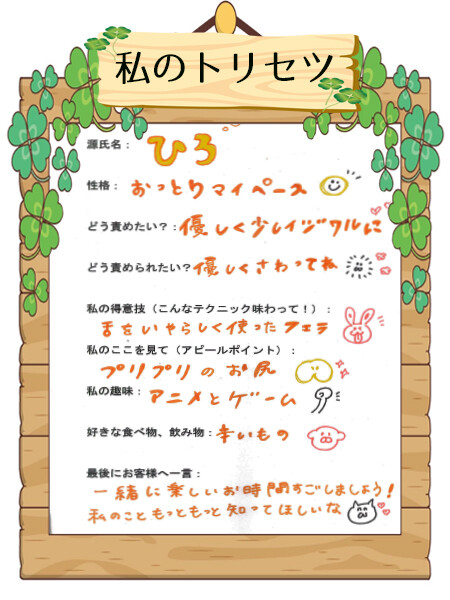 私のトリセツ
源氏名： ひろ
性格： おっとりマイペース
どう責めたい？： 優しく少しイジワルに
どう責められたい？ 優しくさわってね
私の得意技（こんなテクニック味わって！）：
舌をいやらしく使ったフェラ
私のここを見て（アピールポイント）：
プリプリのお尻
私の趣味： アニメとゲーム
好きな食べ物、飲み物： 辛いもの
最後にお客様へ一言：
一緒に楽しいお時間すごしましょう！
私のこともっともっと知ってほしいな